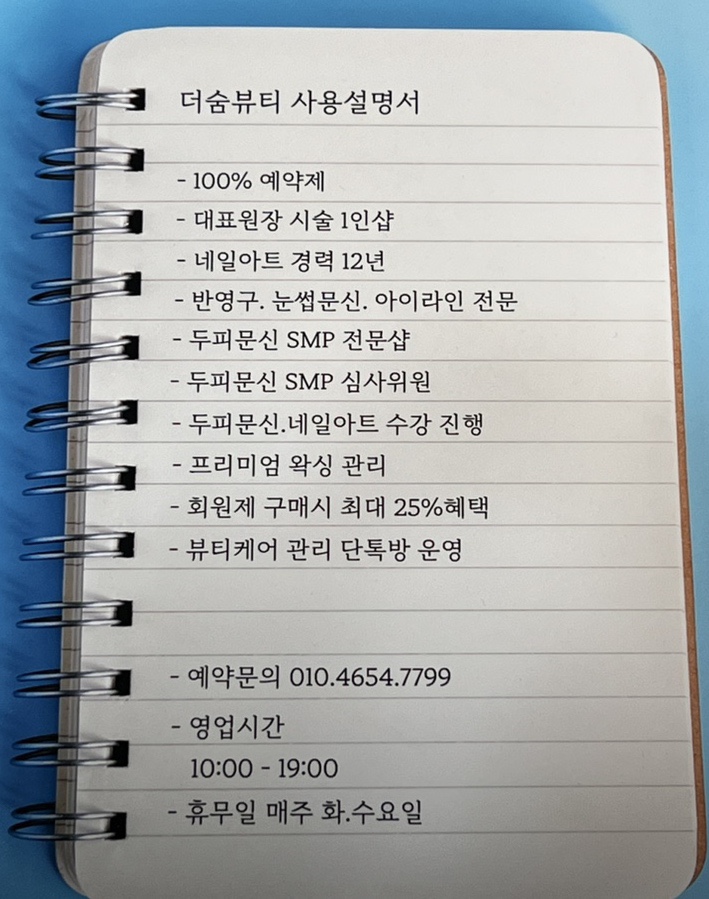 더숨뷰티 사용설명서
- 100% 예약제
- 대표원장 시술 1인샵
- 네일아트 경력 12년
- 반영구. 눈썹문신. 아이라인 전문
- 두피문신 SMP 전문샵
- 두피문신 SMP 심사위원
- 두피문신.네일아트 수강 진행
- 프리미엄 왁싱 관리
- 회원제 구매시 최대 25%혜택
- 뷰티케어 관리 단톡방 운영
- 예약문의 010.4654.7799
- 영업시간
10:00 - 19:00
- 휴무일 매주 화.수요일